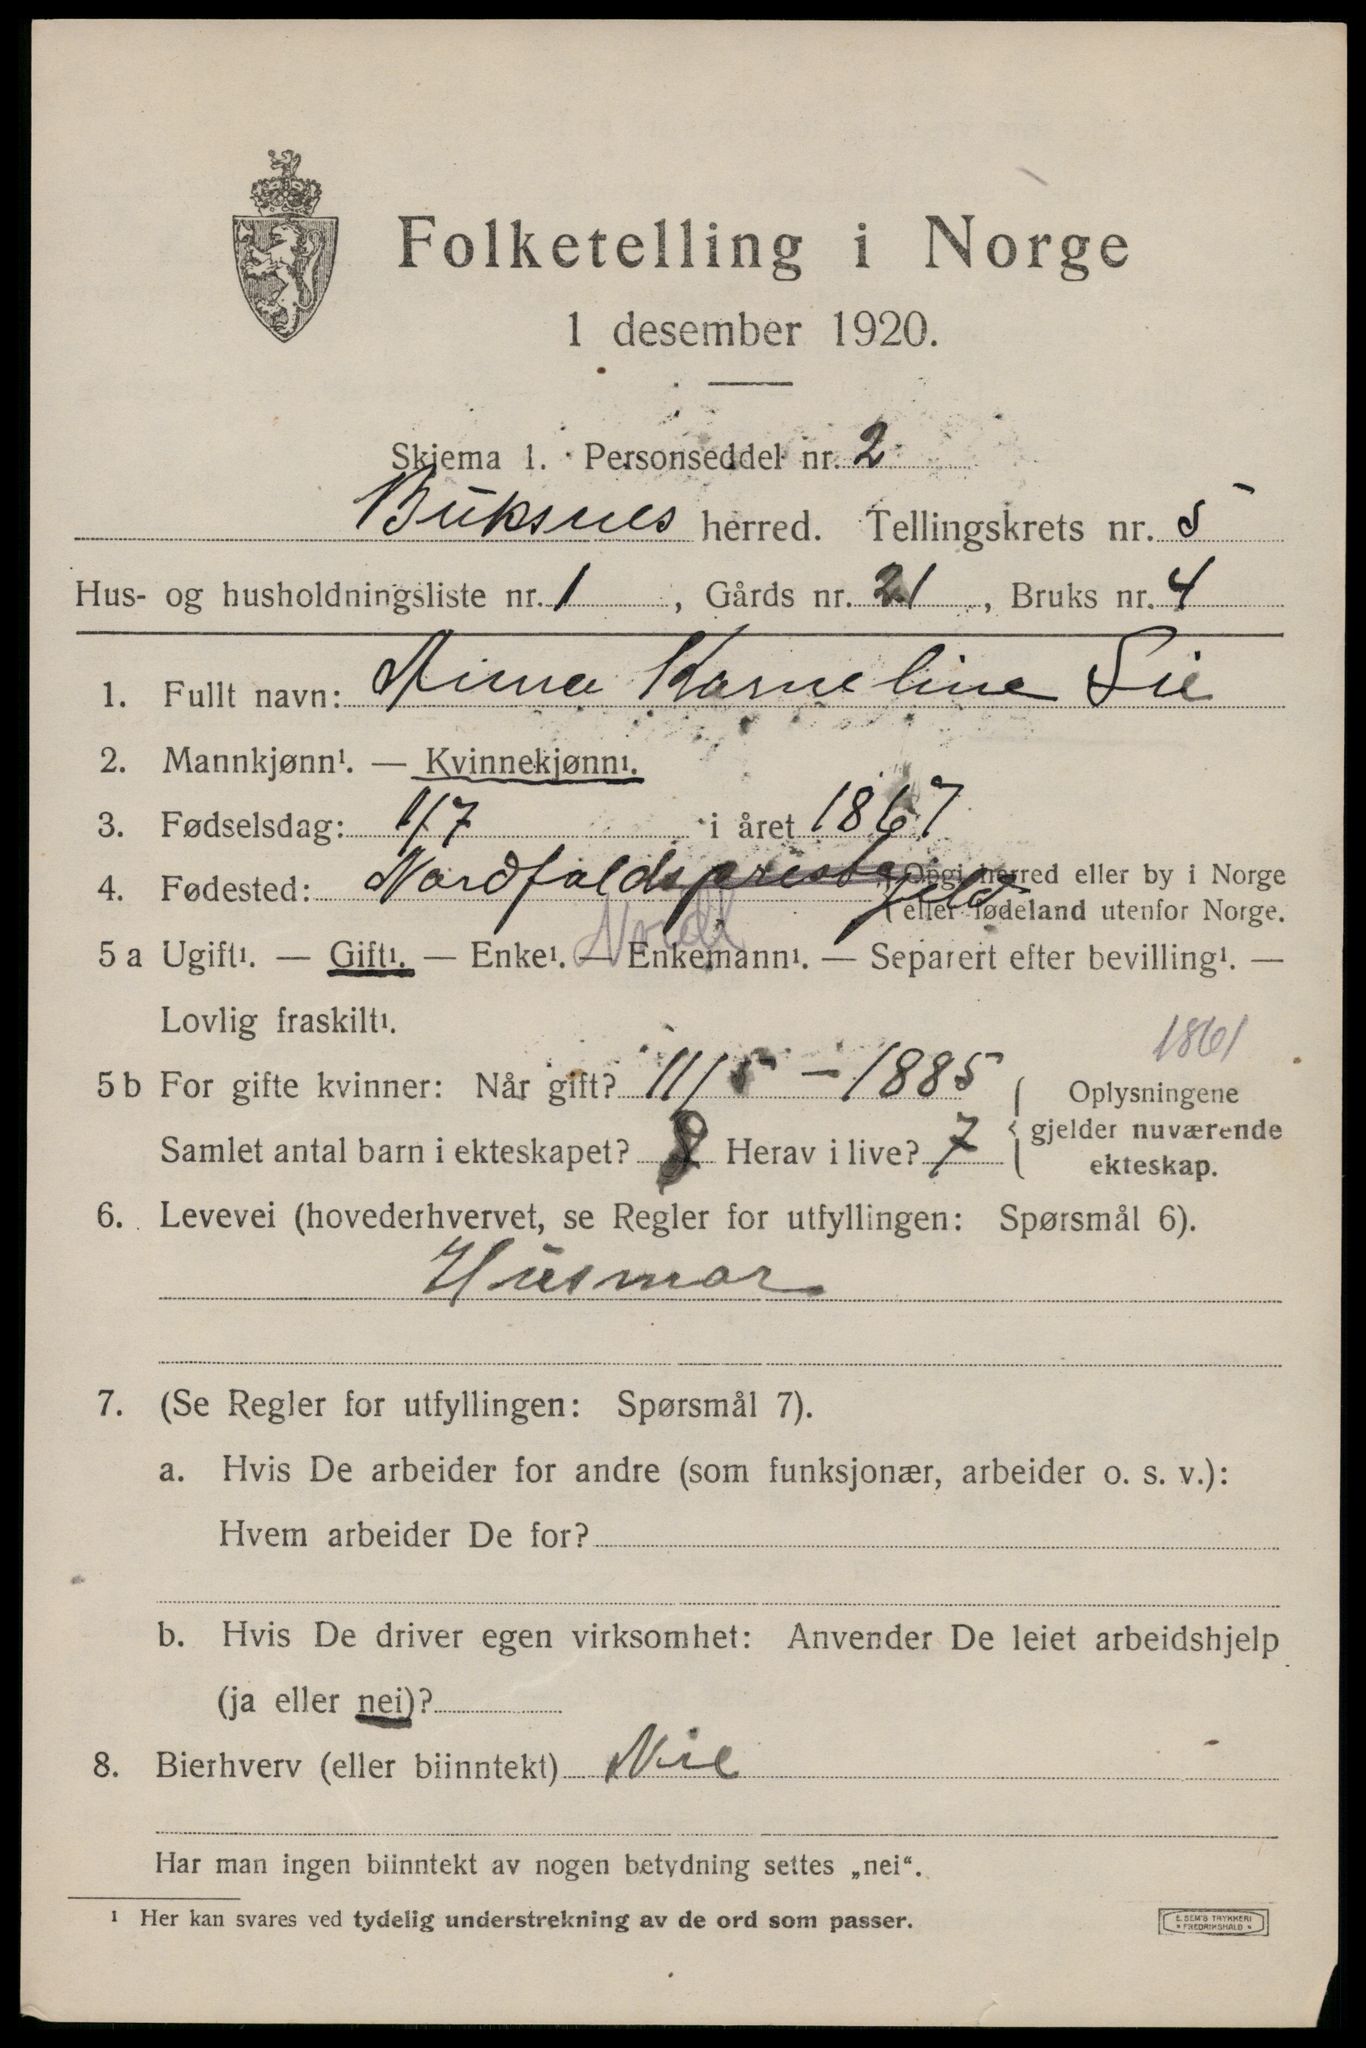 Folketelling i Norge
1 desember 1920.
Skjema 1. Personseddel nr. 2
Buksnes herred. Tellingskrets nr. 5
Hus- og husholdningsliste nr. 1, Gårds nr. 21, Bruks nr. 4
1. Fullt navn: Anna Karneline Lie
2. Mannkjønn¹. — Kvinnekjønn¹.
3. Fødselsdag: 1/7 i året 1867
4. Fødested: Nordfoldsprestegjeld Opgi herred eller by i Norge
eller fødeland utenfor Norge.
Nordl
5 a Ugift¹. — Gift¹. — Enke¹. — Enkemann¹. — Separert efter bevilling¹. —
Lovlig fraskilt¹.
1861
5 b For gifte kvinner: Når gift? 11/5 – 1885 Oplysningene
gjelder nuværende
Samlet antal barn i ekteskapet? 8 Herav i live? 7 ekteskap.
6. Levevei (hovederhvervet, se Regler for utfyllingen: Spørsmål 6).
Husmor
7. (Se Regler for utfyllingen: Spørsmål 7).
a. Hvis De arbeider for andre (som funksjonær, arbeider o. s. v.):
Hvem arbeider De for?
b. Hvis De driver egen virksomhet: Anvender De leiet arbeidshjelp
(ja eller nei)?
8. Bierhverv (eller biinntekt) Nie
Har man ingen biinntekt av nogen betydning settes „nei“.
¹ Her kan svares ved tydelig understrekning av de ord som passer.
E. SEM'S TRYKKERI
FREDRIKSHALD